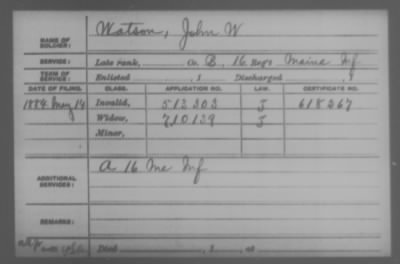 NAME OF SOLDIER: Watson, John W
SERVICE: Late rank, Co. B, 16 Reg't Maine Inf
TERM OF SERVICE: Enlisted , 1 Discharged , 1
DATE OF FILING. CLASS. APPLICATION NO. LAW. CERTIFICATE NO.
1884 May 14 Invalid, 512303 J 618267
Widow, 710129 J
Minor,
ADDITIONAL SERVICES: A 16 Me Inf
REMARKS:
Died , 1 , at